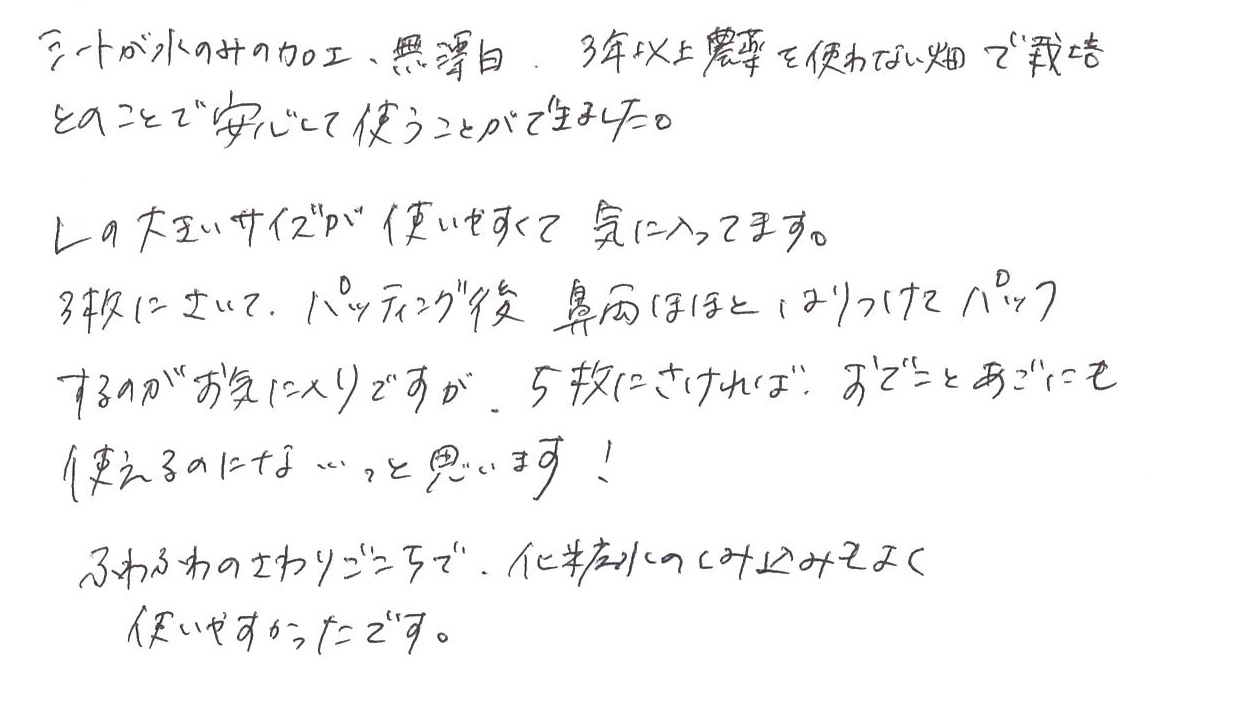 シートが水のみの加工、無漂白、3年以上農薬を使わない畑で栽培
とのことで安心して使うことができました。
Lの大きいサイズが使いやすくて気に入ってます。
3枚にさいて、パッティング後 鼻両ほほとはりつけてパック
するのがお気に入りですが、5枚にさければ、おでことあごにも
使えるのにな…っと思います!
ふわふわのさわりごこちで、化粧水のしみ込みもよく
使いやすかったです。